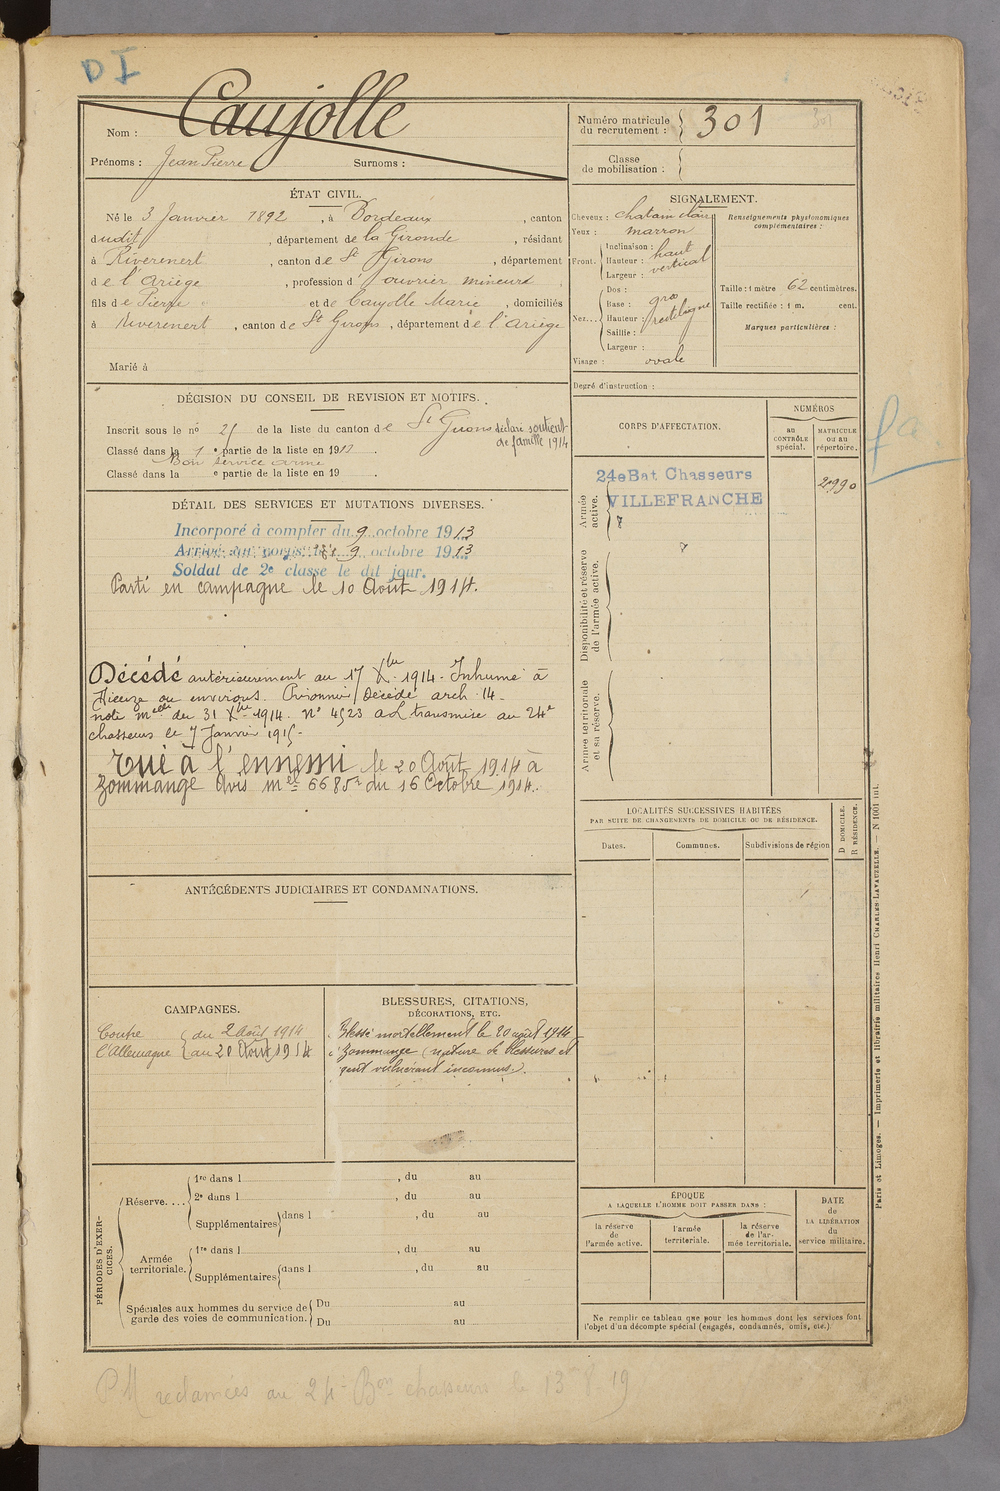 D I
Caujolle
Nom :
Prénoms : Jean Pierre Surnoms :
Numéro matricule du recrutement : 301
Classe de mobilisation :
ÉTAT CIVIL.
Né le 3 Janvier 1892, à Bordeaux, canton
dudit, département de la Gironde, résidant
à Riverenert, canton de St Girons, département
de l'Ariège, profession d'ouvrier mineur
fils de Pierre et de Caujolle Marie, domiciliés
à Riverenert, canton de St Girons, département de l'Ariège
Marié à
SIGNALEMENT.
Cheveux : chatain clair
Yeux : marron
Front. Inclinaison : haut
Hauteur : vertical
Largeur :
Nez... Dos :
Base : gros
Hauteur : rectiligne
Saillie :
Largeur :
Visage : ovale
Renseignements physionomiques complémentaires :
Taille : 1 mètre 62 centimètres.
Taille rectifiée : 1 m. cent.
Marques particulières :
Degré d'instruction :
DÉCISION DU CONSEIL DE REVISION ET MOTIFS.
Inscrit sous le no de la liste du canton de St Girons déclaré soutient de famille 1914
Classé dans la 1e partie de la liste en 1912.
Bon service armé
Classé dans la e partie de la liste en 19 .
DÉTAIL DES SERVICES ET MUTATIONS DIVERSES.
Incorporé à compter du 9 octobre 1913
Arrivé au corps le 9 octobre 1913
Soldat de 2e classe le dit jour.
Parti en campagne le 10 Août 1914.
Décédé antérieurement au 17 Xbre 1914. Inhumé à
Dieuze ou environs. Prisonnier/Décédé arch 14
note melle du 31 Xbre 1914. No 4523 adL transmise au 24e
chasseurs le 7 Janvier 1915.
Tué à l'ennemi le 20 Août 1914 à
Zommange Avis mel 6685 du 16 Octobre 1914.
CORPS D'AFFECTATION.
NUMÉROS
au CONTRÔLE spécial.
MATRICULE ou au répertoire.
Armée active.
24e Bat Chasseurs
VILLEFRANCHE
2990
fa.
Disponibilité et réserve de l'armée active.
Armée territoriale et sa réserve.
LOCALITÉS SUCCESSIVES HABITÉES
PAR SUITE DE CHANGEMENTS DE DOMICILE OU DE RÉSIDENCE.
Dates. Communes. Subdivisions de région
D DOMICILE.
R RÉSIDENCE.
ANTÉCÉDENTS JUDICIAIRES ET CONDAMNATIONS.
CAMPAGNES.
Contre du 2 Août 1914
l'Allemagne au 20 Août 1914
BLESSURES, CITATIONS,
DÉCORATIONS, ETC.
Blessé mortellement le 20 août 1914
à Zommange (nature de blessures et
agent vulnérant inconnus).
PÉRIODES D'EXERCICES.
Réserve.... 1re dans l , du au
2e dans l , du au
Supplémentaires dans l , du au
Armée territoriale. 1re dans l , du au
Supplémentaires dans l , du au
Spéciales aux hommes du service de garde des voies de communication. Du au
Du au
ÉPOQUE
A LAQUELLE L'HOMME DOIT PASSER DANS :
la réserve de l'armée active.
l'armée territoriale.
la réserve de l'armée territoriale.
DATE de LA LIBÉRATION du service militaire.
Ne remplir ce tableau que pour les hommes dont les services font
l'objet d'un décompte spécial (engagés, condamnés, omis, etc.).
Paris et Limoges. — Imprimerie et librairie militaires Henri CHARLES-LAVAUZELLE. — N 1001 int.
PM reclamées au 24e Bon chasseurs le 13 8 19